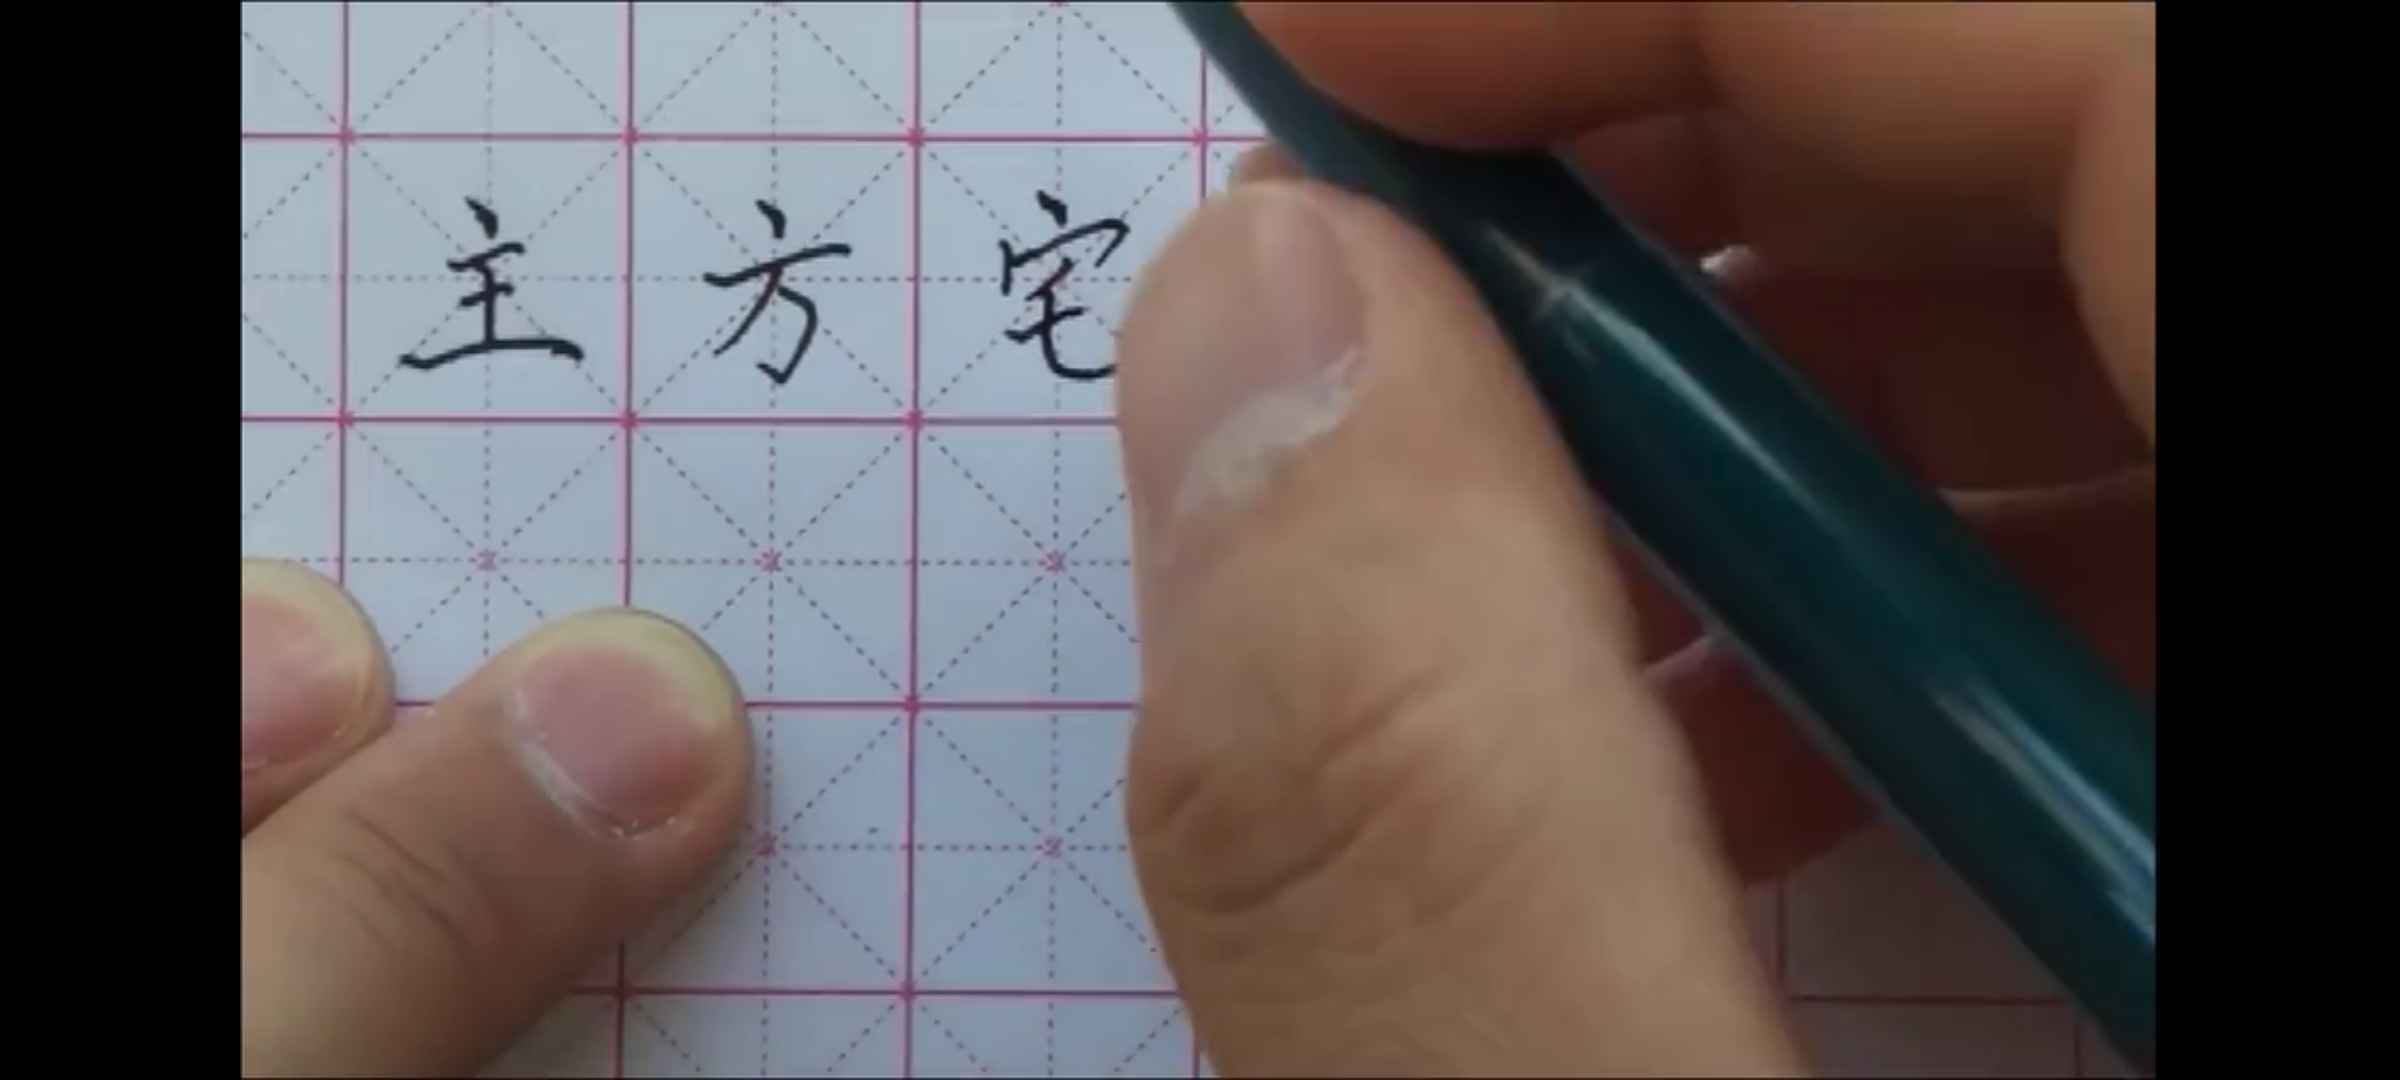 主方宅